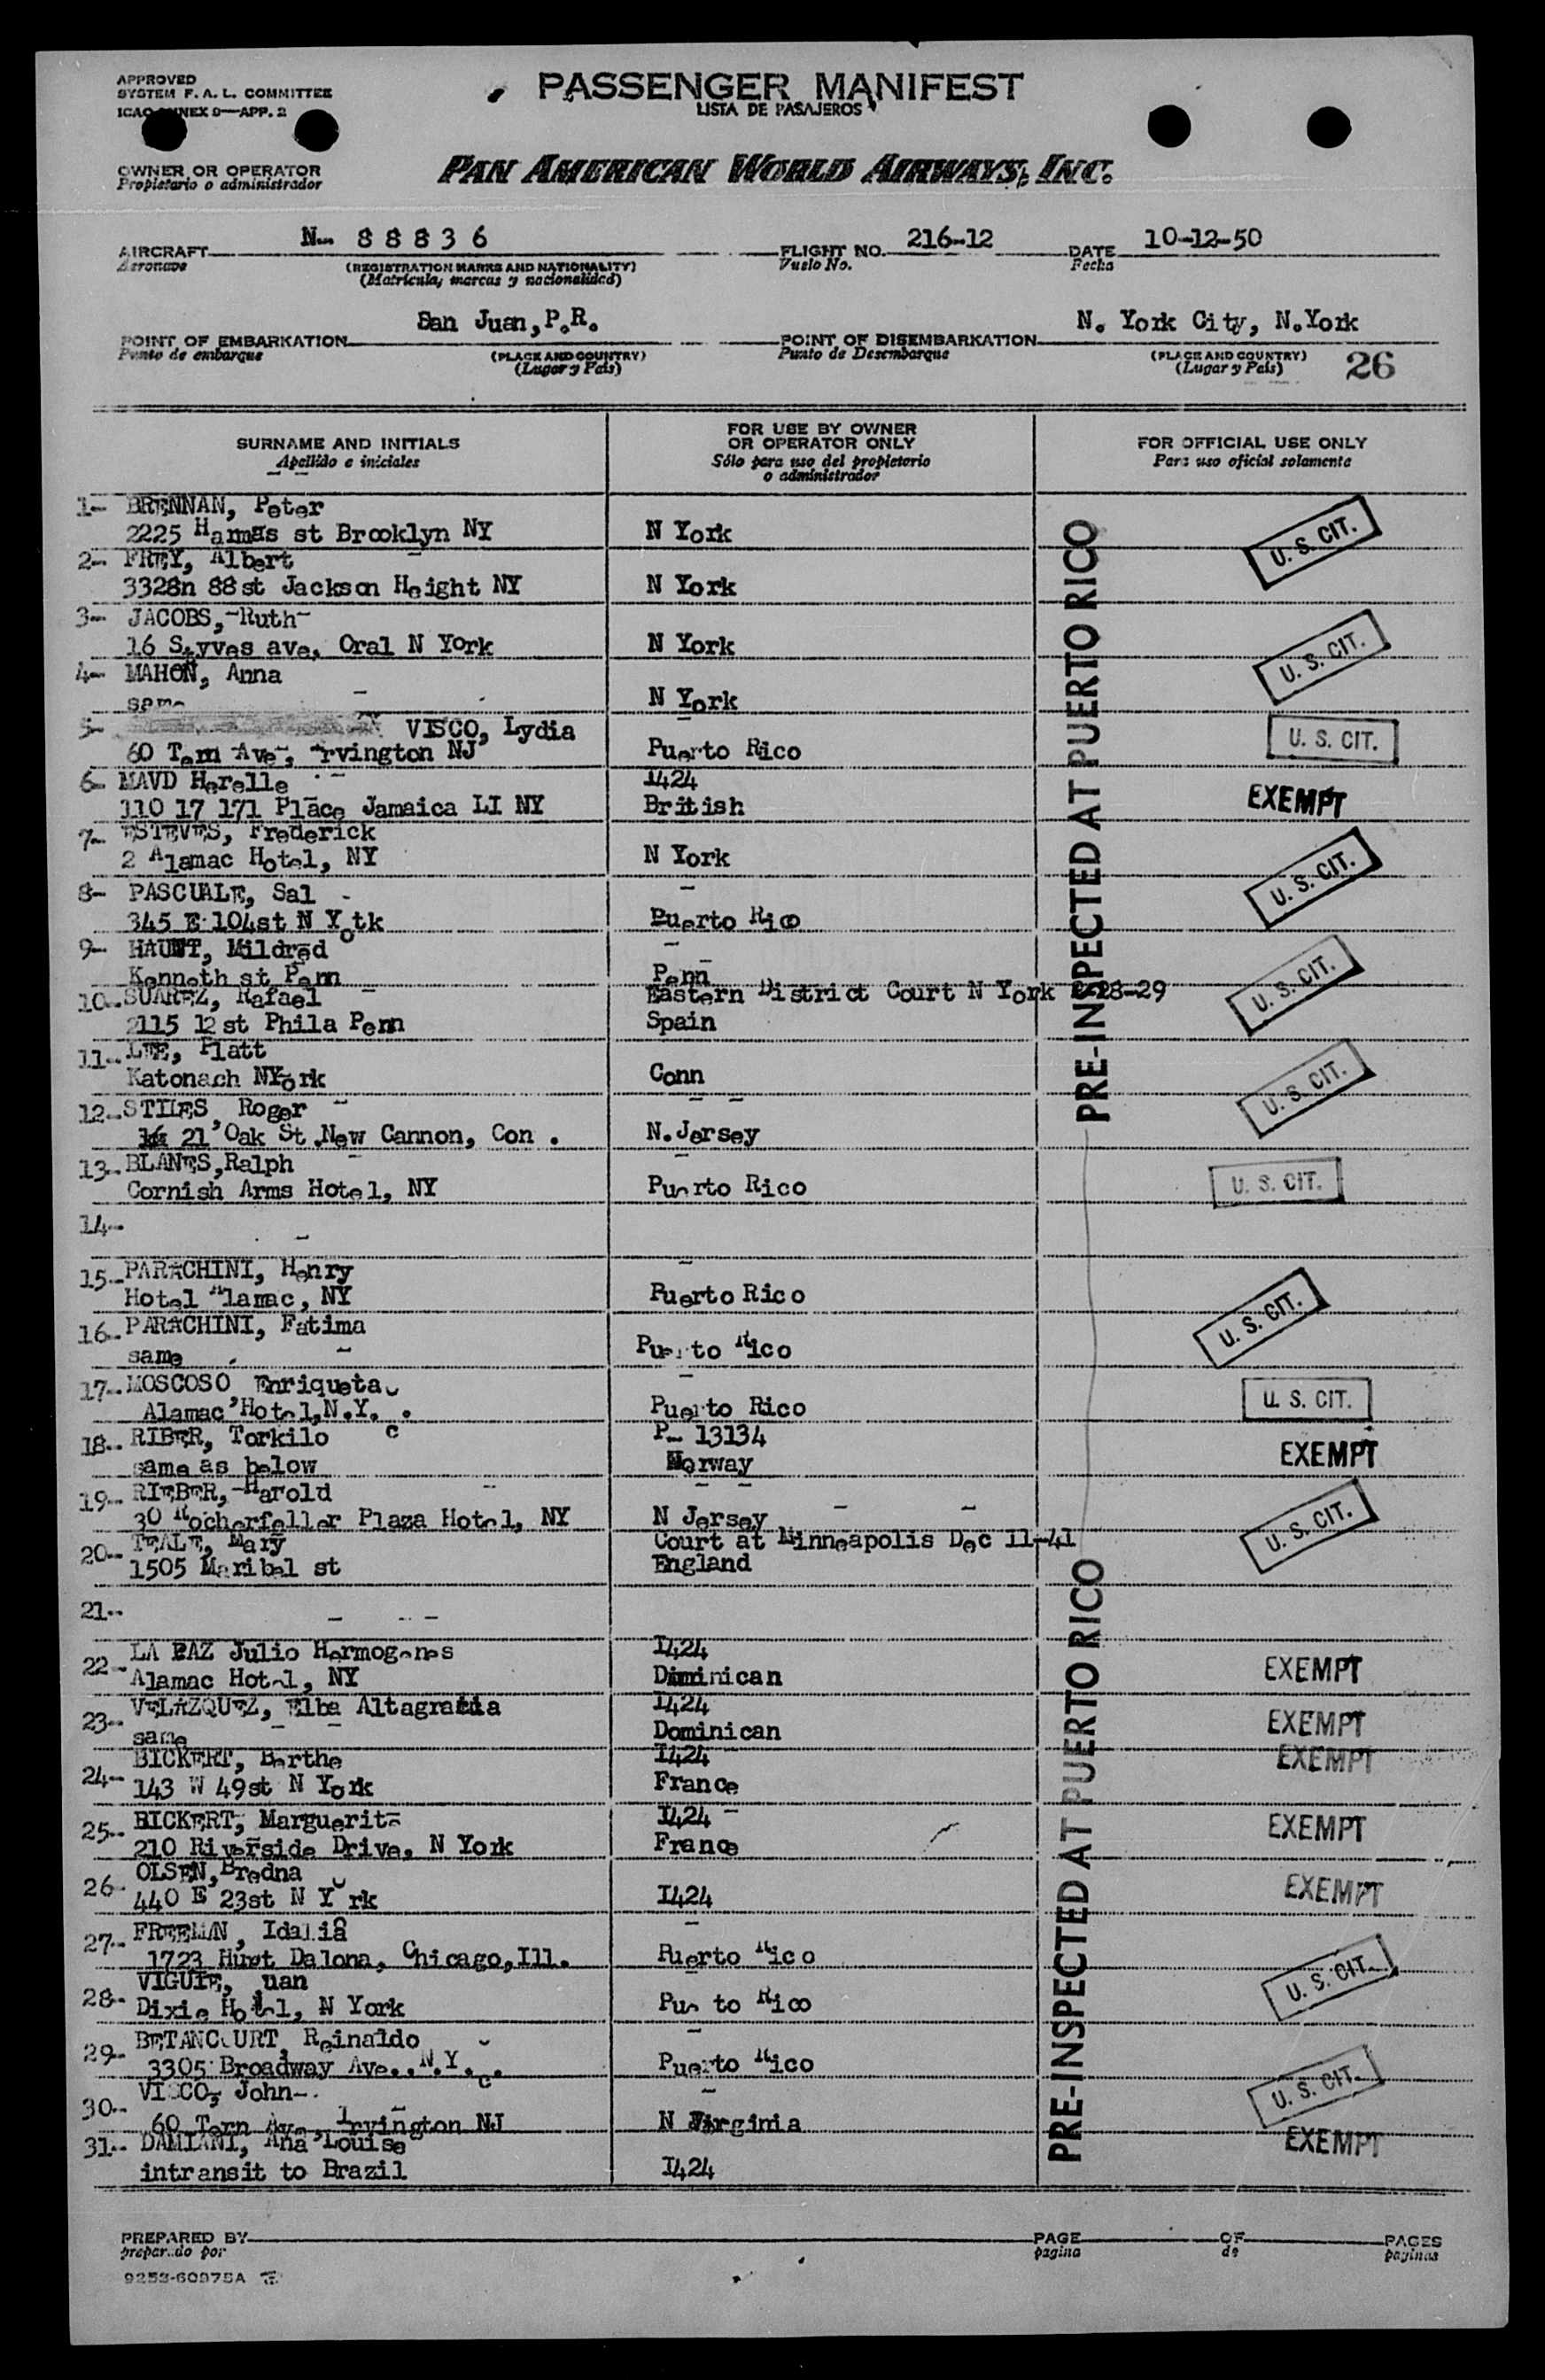 APPROVED
SYSTEM F. A. L. COMMITTEE
ICAO ANNEX 9—APP. 2
PASSENGER MANIFEST
LISTA DE PASAJEROS
OWNER OR OPERATOR
Propietario o administrador
PAN AMERICAN WORLD AIRWAYS, INC.
AIRCRAFT N- 88836 FLIGHT NO. 216-12 DATE 10-12-50
Aeronave (REGISTRATION MARKS AND NATIONALITY) Vuelo No. Fecha
(Matrícula, marcas y nacionalidad)
POINT OF EMBARKATION San Juan, P.R. POINT OF DISEMBARKATION N. York City, N.York
Punto de embarque (PLACE AND COUNTRY) Punto de Desembarque (PLACE AND COUNTRY)
(Lugar y País) (Lugar y País) 26
SURNAME AND INITIALS FOR USE BY OWNER OR OPERATOR ONLY FOR OFFICIAL USE ONLY
Apellido e iniciales Sólo para uso del propietario o administrador Para uso oficial solamente
PRE-INSPECTED AT PUERTO RICO
1- BRENNAN, Peter
2225 Harmas st Brooklyn NY N York U. S. CIT.
2- FREY, Albert
3328n 88st Jackson Height NY N York
3- JACOBS, Ruth
16 S.yves ave, Oral N York N York U. S. CIT.
4- MAHON, Anna
same N York
5- VISCO, Lydia U. S. CIT.
60 Tern Ave, Irvington NJ Puerto Rico
6- MAVD Herelle I424
110 17 171 Place Jamaica LI NY British EXEMPT
7- ESTEVES, Frederick
2 Alamac Hotel, NY N York U. S. CIT.
8- PASCUALE, Sal
345 E 104st N Yotk Puerto Rico
9- HAUNT, Mildred
Kenneth st Penn Penn U. S. CIT.
10- SUAREZ, Rafael Eastern District Court N York 28-29
2115 12st Phila Penn Spain
11- LEE, Platt
Katonach NYork Conn U. S. CIT.
12- STILES, Roger
21 Oak St New Cannon, Con. N.Jersey
13- BLANES, Ralph
Cornish Arms Hotel, NY Puerto Rico U. S. CIT.
14-
15- PARACHINI, Henry
Hotel Alamac, NY Puerto Rico U. S. CIT.
16- PARACHINI, Fatima
same Puerto Rico
17- MOSCOSO, Enriqueta
Alamac Hotel, N.Y. Puerto Rico U. S. CIT.
18- RIBER, Torkilo P- 13134
same as below Norway EXEMPT
19- RIEBER, Harold
30 Rocherfeller Plaza Hotel, NY N Jersey U. S. CIT.
20- TEALE, Mary Court at Minneapolis Dec 11-41
1505 Maribel st England
21-
PRE-INSPECTED AT PUERTO RICO
22- LA PAZ Julio Hermogenes I424
Alamac Hotel, NY Dominican EXEMPT
23- VELAZQUEZ, Elba Altagratia I424
same Dominican EXEMPT
24- BICKERT, Berthe I424 EXEMPT
143 W 49st N York France
25- BICKERT, Marguerite I424
210 Riverside Drive, N York France EXEMPT
26- OLSEN, Bredna
440 E 23st N York I424 EXEMPT
27- FREEMAN, Idalia
1723 Hurst Dalona, Chicago, Ill. Puerto Rico
28- VIGUIE, Juan U. S. CIT.
Dixie Hotel, N York Puerto Rico
29- BETANCOURT, Reinaldo
3305 Broadway Ave., N.Y. Puerto Rico
30- VISCO, John U. S. CIT.
60 Tern Ave, Irvington NJ N Virginia
31- DAMIANI, Ana Louise EXEMPT
intransit to Brazil I424
PREPARED BY PAGE OF PAGES
preparado por pagina de paginas